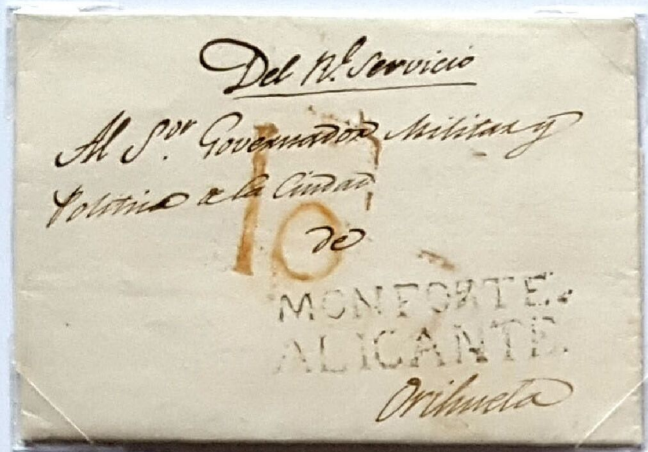 Del Rl. Servicio
Al Sor. Governador Militar y
Politico de la Ciudad
de
MONFORTE.
ALICANTE.
Orihuela